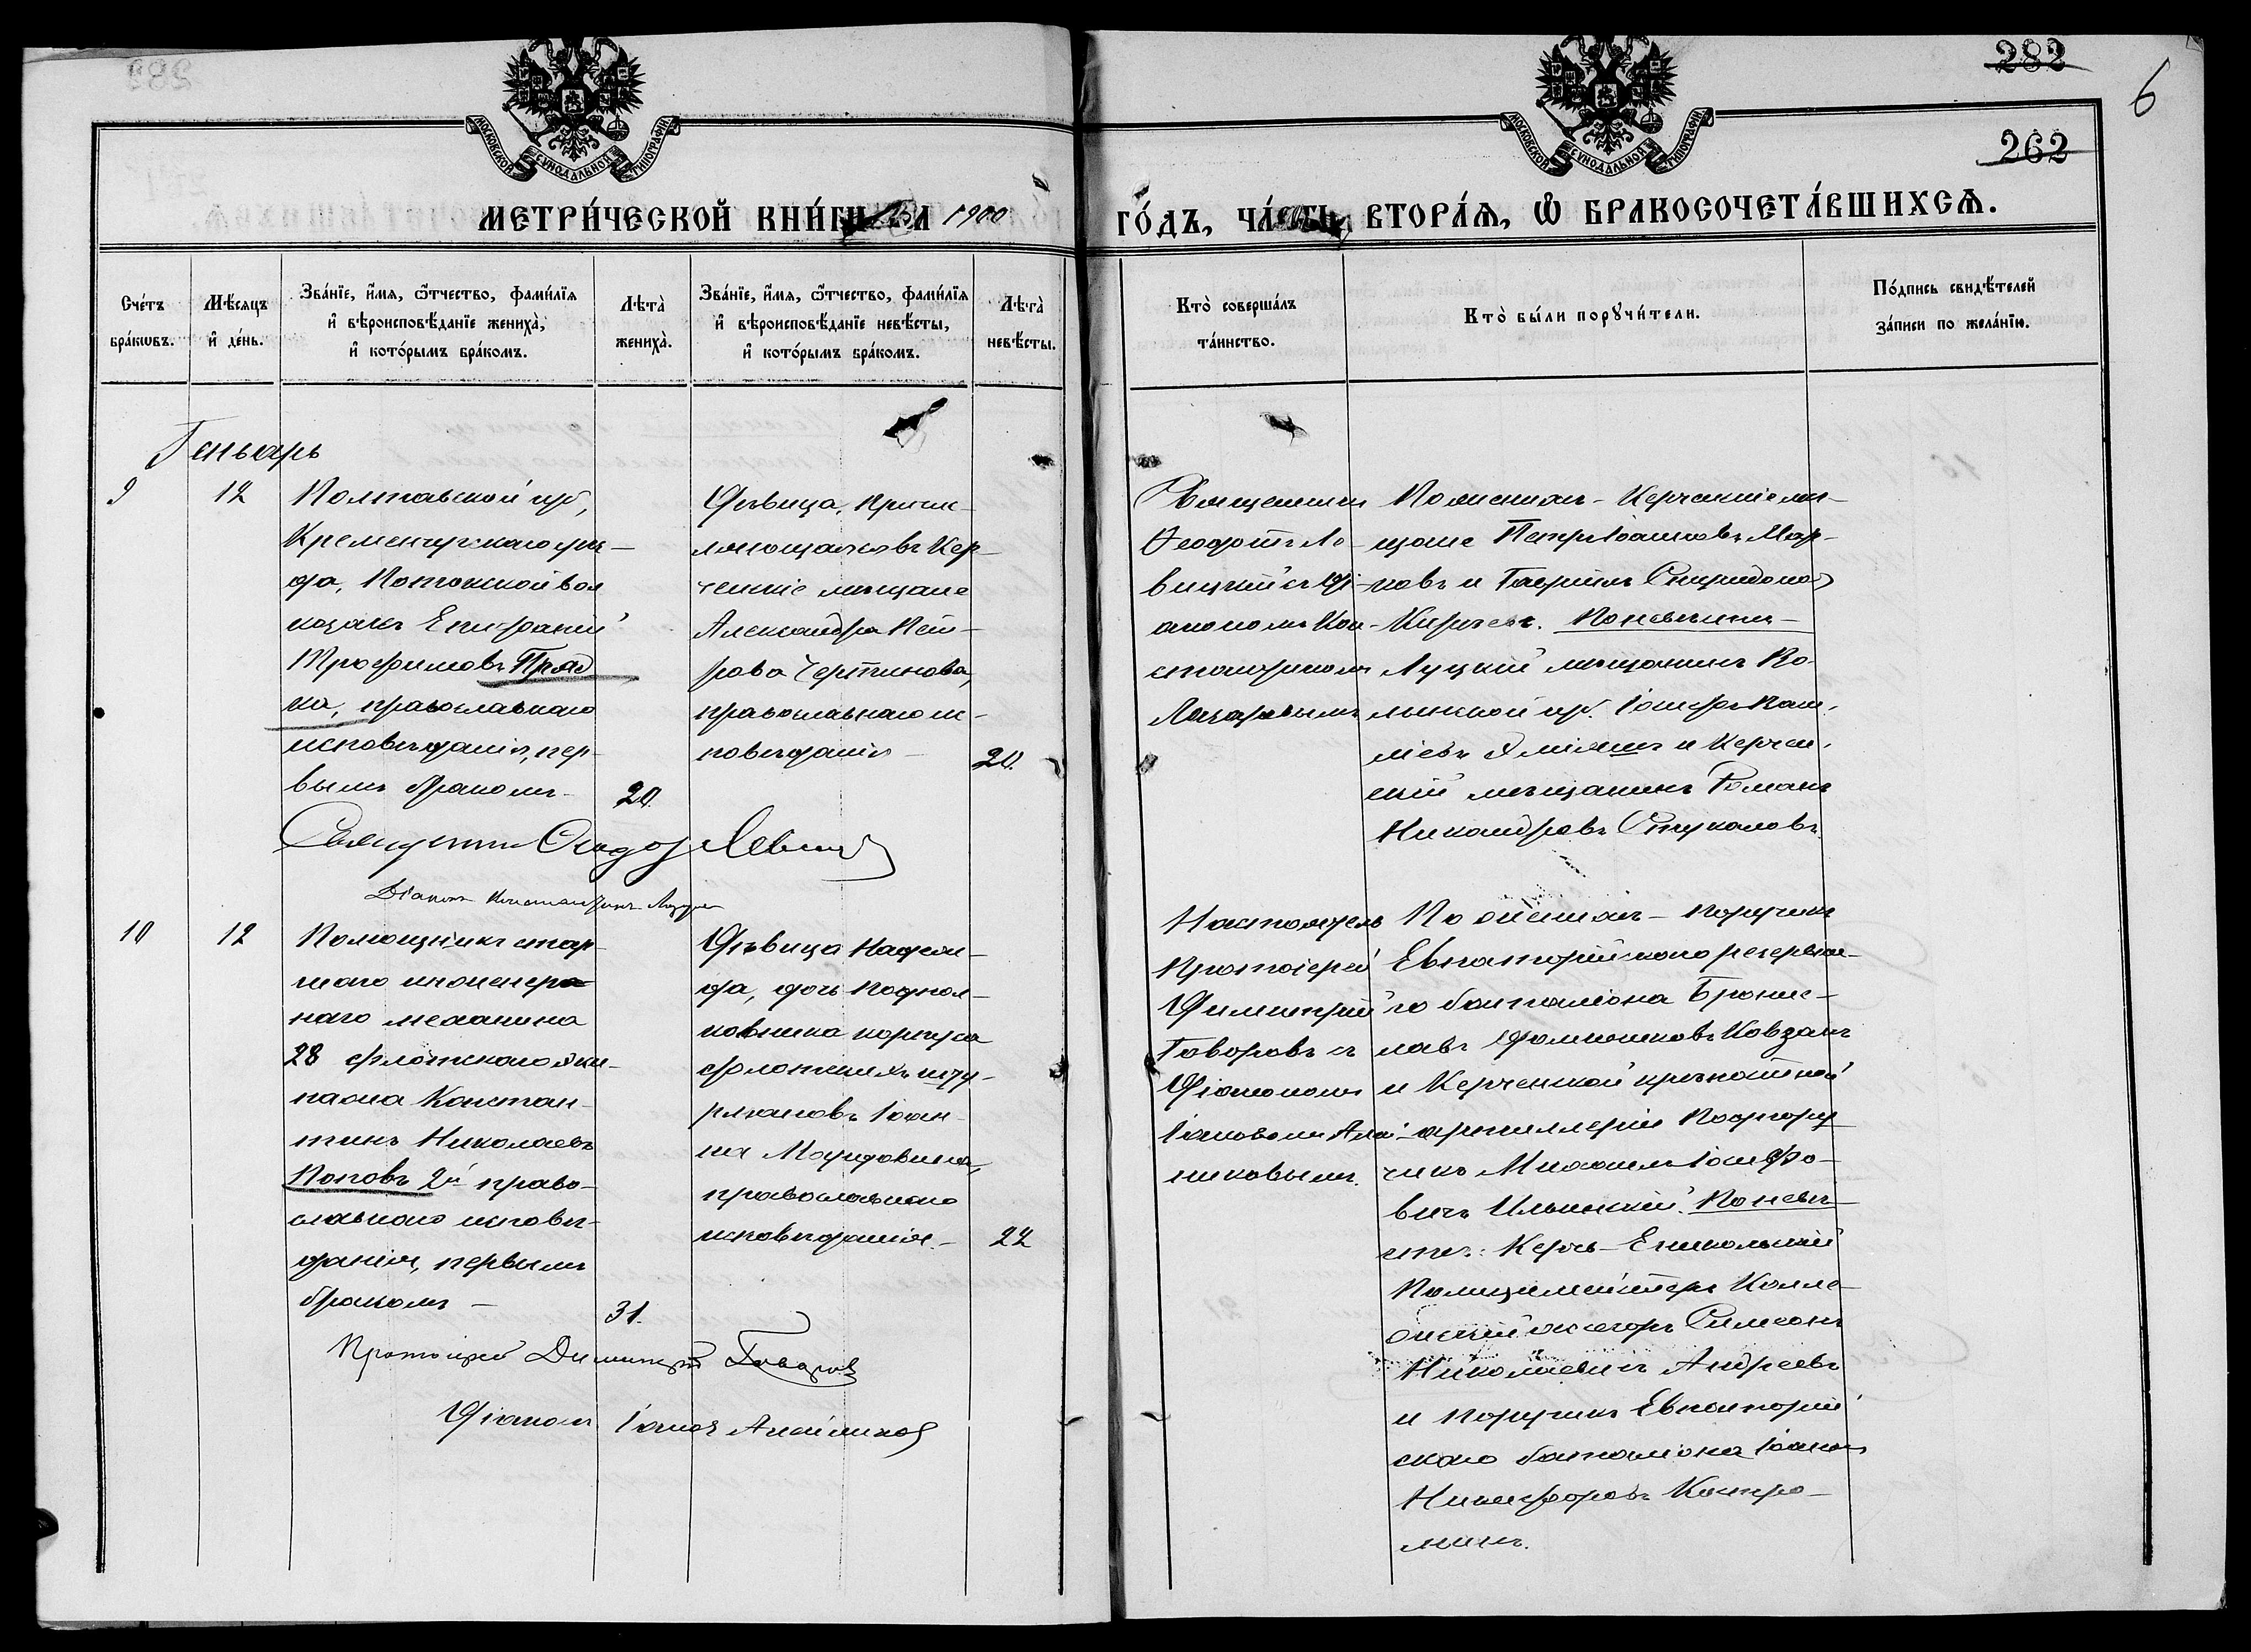 282
6
262
МОСКОВСКОЙ СѴНОДАЛЬНОЙ ТИПОГРАФІИ
МОСКОВСКОЙ СѴНОДАЛЬНОЙ ТИПОГРАФІИ
МЕТРИ́ЧЕСКОЙ КНИ́ГИ НА 1900
ГО́ДЪ, ЧА́СТЬ ВТОРА́Ѧ, Ѡ БРАКОСОЧЕТА́ВШИХСѦ.
Сче́тъ бра́кωвъ.
Мѣ́сяцъ и҆ де́нь.
Зва́нїе, и҆́мя, ѻ҆́тчество, фами́лїя и҆ вѣроисповѣ́данїе жениха̀, и҆ кото́рымъ бра́комъ.
Лѣта̀ жениха̀.
Зва́нїе, и҆́мя, ѻ҆́тчество, фами́лїя и҆ вѣроисповѣ́данїе невѣ́сты, и҆ кото́рымъ бра́комъ.
Лѣта̀ невѣ́сты.
Кто̀ соверша́лъ та́инство.
Кто̀ бы́ли порꙋчи́тели.
По́дпись свидѣ́телей за́писи по жела́нїю.
Геньварь
9
12
Полтавской губ,
Кременчугскаго уѣз-
да, Потокской вол
козакъ Епифаній
Трофимовъ Пряд
ка, православнаго
исповѣданія, пер-
вымъ бракомъ.
20.
Дѣвица, причис-
ленная въ Кер-
ченскіе мѣщане
Александра Пет-
рова Чертинова,
православнаго ис-
повѣданія
20.
Священникъ
Ѳеодотъ Ле-
вицкій съ ді-
акономъ Кон-
стантиномъ
Лазаревымъ
По женихѣ - Керченскіе мѣ-
щане Петръ Іоанновъ Мар-
ковъ и Гавріилъ Спиридонов
Киричекъ. По невѣстѣ
Луцкій мѣщанинъ Во-
лынской губ. Іосифъ
и Керчен-
скій мѣщанинъ Романъ
Никандровъ Стукаловъ.
Священникъ Ѳеодотъ Левицкій
Діаконъ Константинъ Лазаревъ
10
12
Помощникъ стар-
шаго инженеръ
наго механика
28 флотскаго эки-
пажа Констан-
тинъ Николаевъ
Поповъ 2й право-
славнаго исповѣ-
данія, первымъ
бракомъ
31.
Дѣвица Надеж-
да, дочь Подпол-
ковника корпуса
флотскихъ шту-
рмановъ Іоан-
на Мордовина,
православнаго
исповѣданія.
22
Настоятель
Протоіерей
Димитрій
Говоровъ съ
Діакономъ
Іоанномъ Алей-
никовымъ.
По женихѣ - поручикъ
Евпаторійскаго резервна-
го баталіона Бронис-
лавъ Доминиковъ Ковзанъ
и Керченской крѣпостной
артиллеріи Подпору
чикъ Михаилъ Іосифо-
вичъ Ильинскій. По невѣ-
стѣ: Керчь-Еникольскій
Полиціймейстеръ Колле-
жскій ассесоръ Симеонъ
Николаевичъ Андреевъ
и поручикъ Евпаторій
скаго баталіона Іоаннъ
Никифоровъ Костро-
минъ.
Протоіерей Димитрій Говоровъ
Діаконъ Іоаннъ Алейников